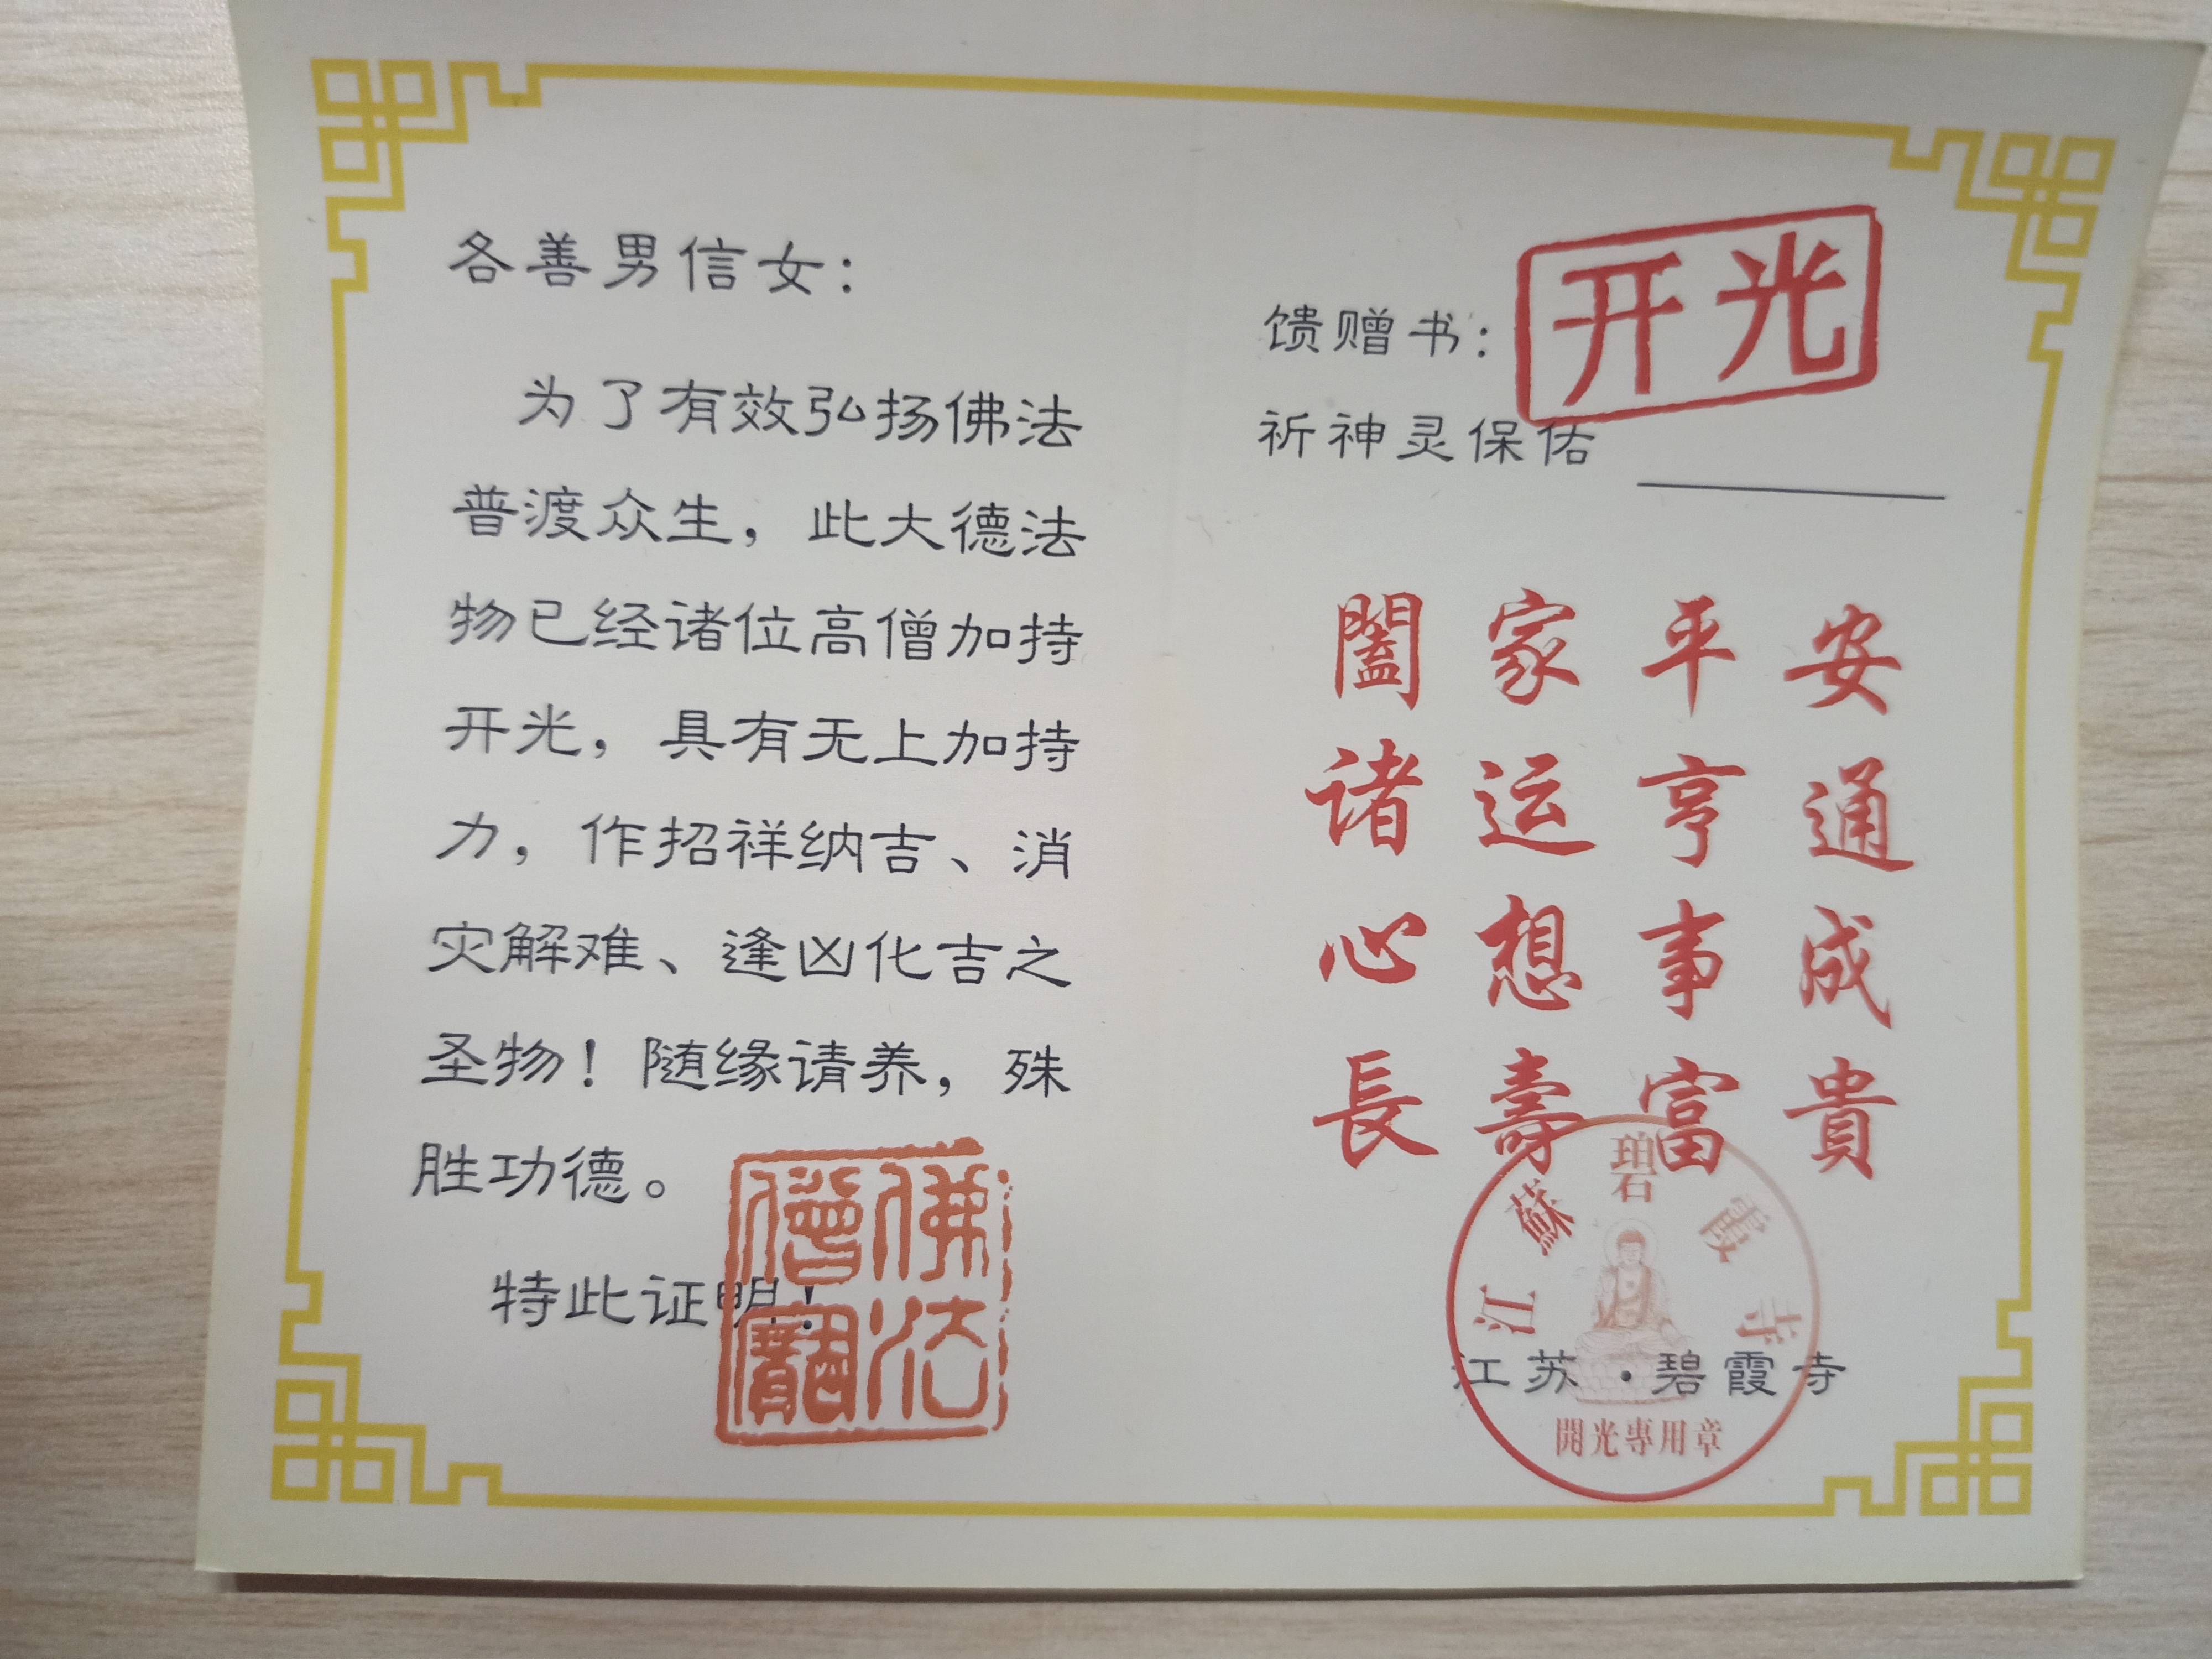 各善男信女：
为了有效弘扬佛法
普渡众生，此大德法
物已经诸位高僧加持
开光，具有无上加持
力，作招祥纳吉、消
灾解难、逢凶化吉之
圣物！随缘请养，殊
胜功德。
特此证明！
佛法
僧寶
馈赠书：
开光
祈神灵保佑
闔家平安
诸运亨通
心想事成
長壽富貴
江蘇碧霞寺
江苏·碧霞寺
開光專用章